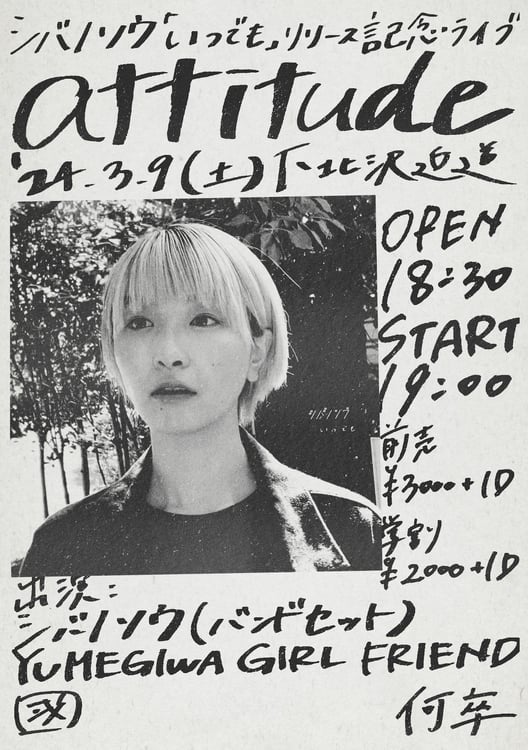 シバノソウ「いつでも」リリース記念ライブ
attitude
'24.3.9(土)下北沢近道
OPEN
18:30
START
19:00
シバノソウ
いつでも
前売
¥3000+1D
学割
¥2000+1D
出演:
シバノソウ(バンドセット)
YUMEGIWA GIRL FRIEND
何卒